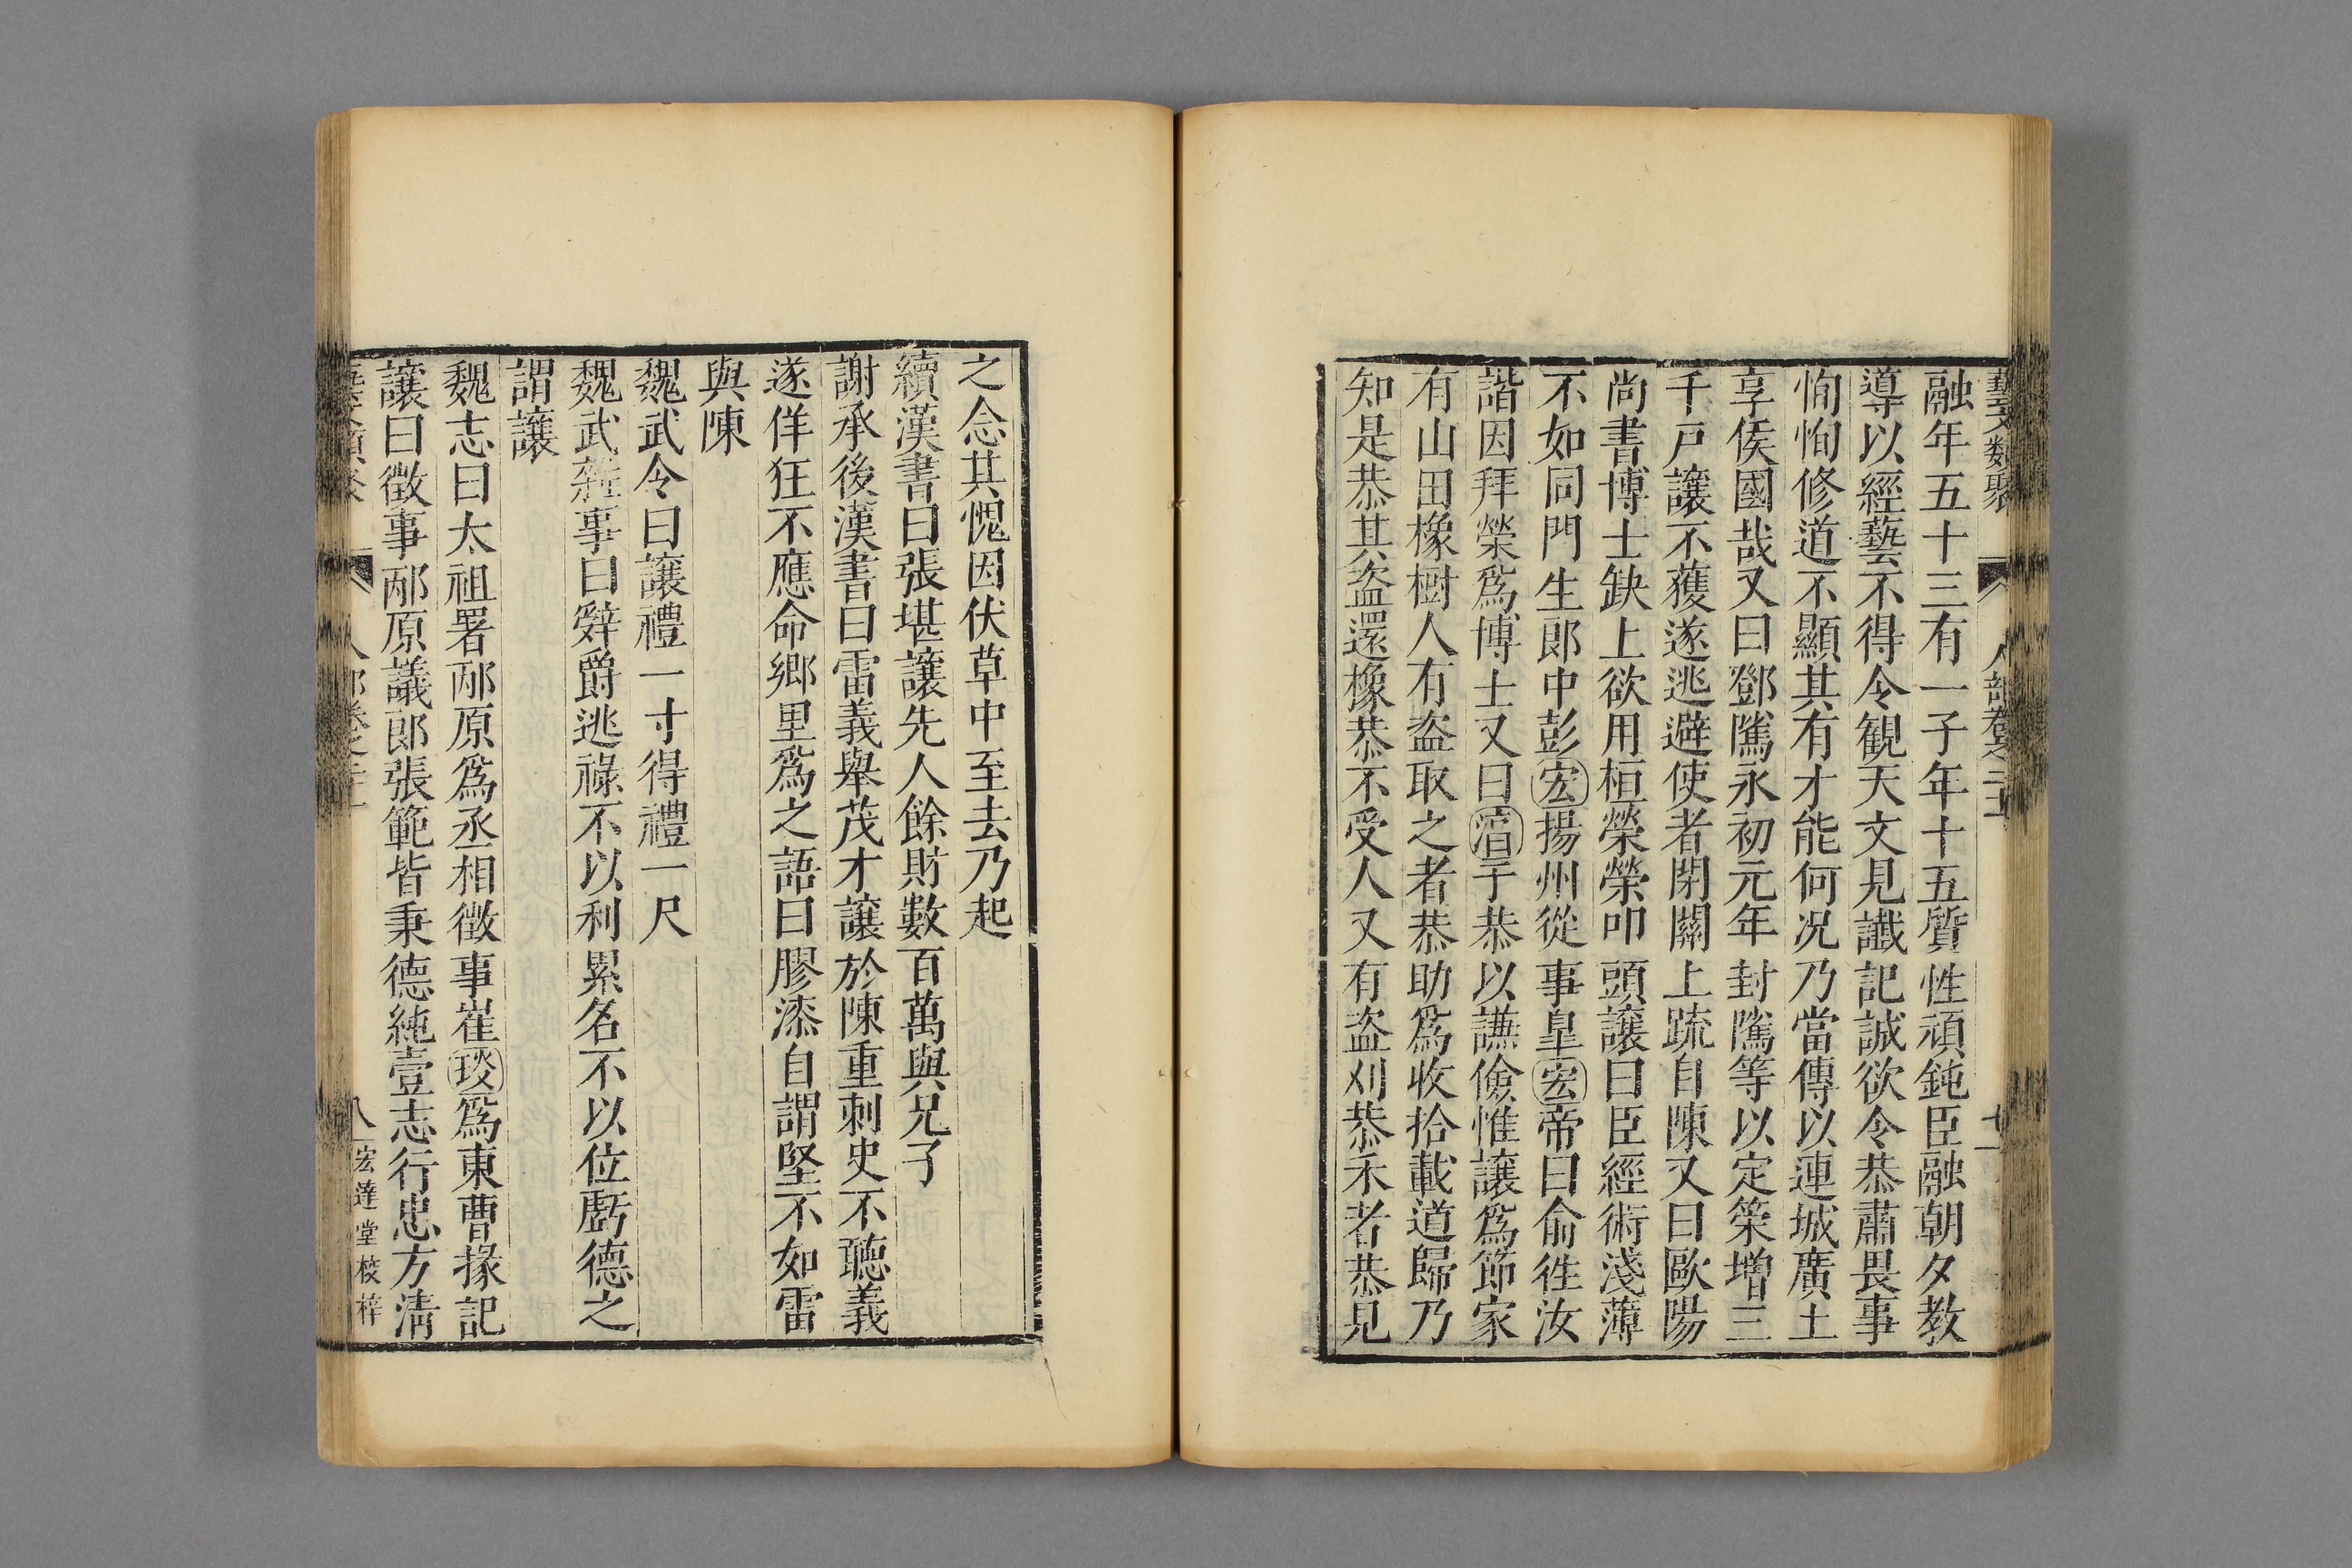 藝文類聚 人部卷之二十一
融年五十三有一子年十五質性頑鈍臣融朝夕教
導以經藝不得令觀天文見讖記誠欲令恭肅畏事
恂恂修道不顯其有才能何况乃當傳以連城廣土
享侯國哉又曰鄧隲永初元年封隲等以定策增三
千戸讓不獲遂逃避使者閉關上疏自陳又曰歐陽
尚書博士缺上欲用桓榮榮叩頭讓曰臣經術淺薄
不如同門生郎中彭宏揚州從事皐宏帝曰俞徃汝
諧因拜榮爲博士又曰淯于恭以謙儉惟讓爲節家
有山田橡樹人有盗取之者恭助爲收拾載道歸乃
知是恭其盗還橡恭不受人又有盗刈恭禾者恭見
之念其愧因伏草中至去乃起
續漢書曰張堪讓先人餘財數百萬與兄子
謝承後漢書曰雷義舉茂才讓於陳重刺史不聽義
遂佯狂不應命鄉里爲之語曰膠漆自謂堅不如雷
與陳
魏武令曰讓禮一寸得禮一尺
魏武雜事曰辭爵逃祿不以利累名不以位虧德之
謂讓
魏志曰太祖署邴原爲丞相徵事崔琰爲東曹掾記
讓曰徵事邴原議郎張範皆秉德純壹志行忠方淸
八 宏達堂校梓